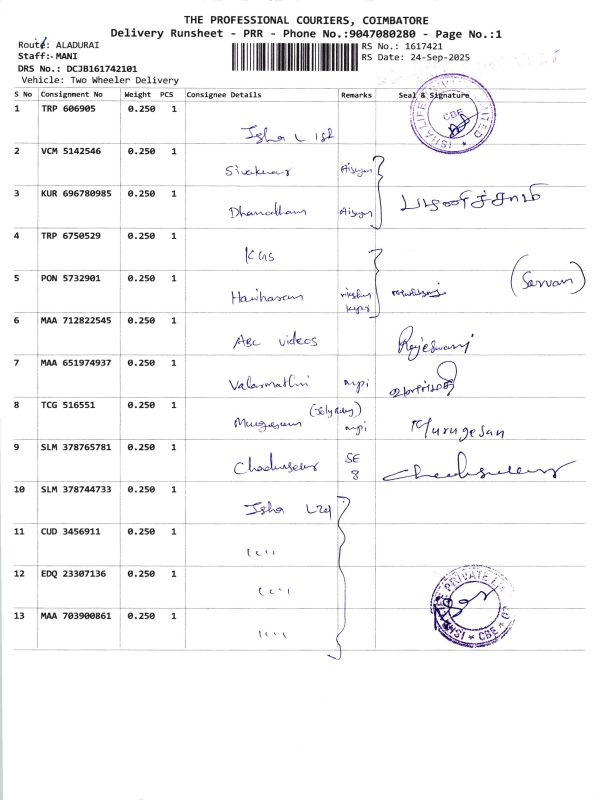 THE PROFESSIONAL COURIERS, COIMBATORE
Delivery Runsheet - PRR - Phone No.:9047080280 - Page No.:1
Route: ALADURAI
RS No.: 1617421
Staff:- MANI
RS Date: 24-Sep-2025
DRS No.: DCJB161742101
Vehicle: Two Wheeler Delivery
S No Consignment No Weight PCS Consignee Details Remarks Seal & Signature
1 TRP 606905 0.250 1 Isha
ISHA LIFE PRIVATE LIMITED
CBE
2 VCM 5142546 0.250 1
3 KUR 696780985 0.250 1 பழனிச்சாமி
4 TRP 6750529 0.250 1 KGS
5 PON 5732901 0.250 1 Hariharan
6 MAA 712822545 0.250 1 ABC videos Rajeswari
7 MAA 651974937 0.250 1 Valarmathi வளர்மதி
8 TCG 516551 0.250 1 Murugesan
9 SLM 378765781 0.250 1 SE 8
10 SLM 378744733 0.250 1 Isha
11 CUD 3456911 0.250 1 ''''
12 EDQ 23307136 0.250 1 ''''
13 MAA 703900861 0.250 1 ''''
CBE